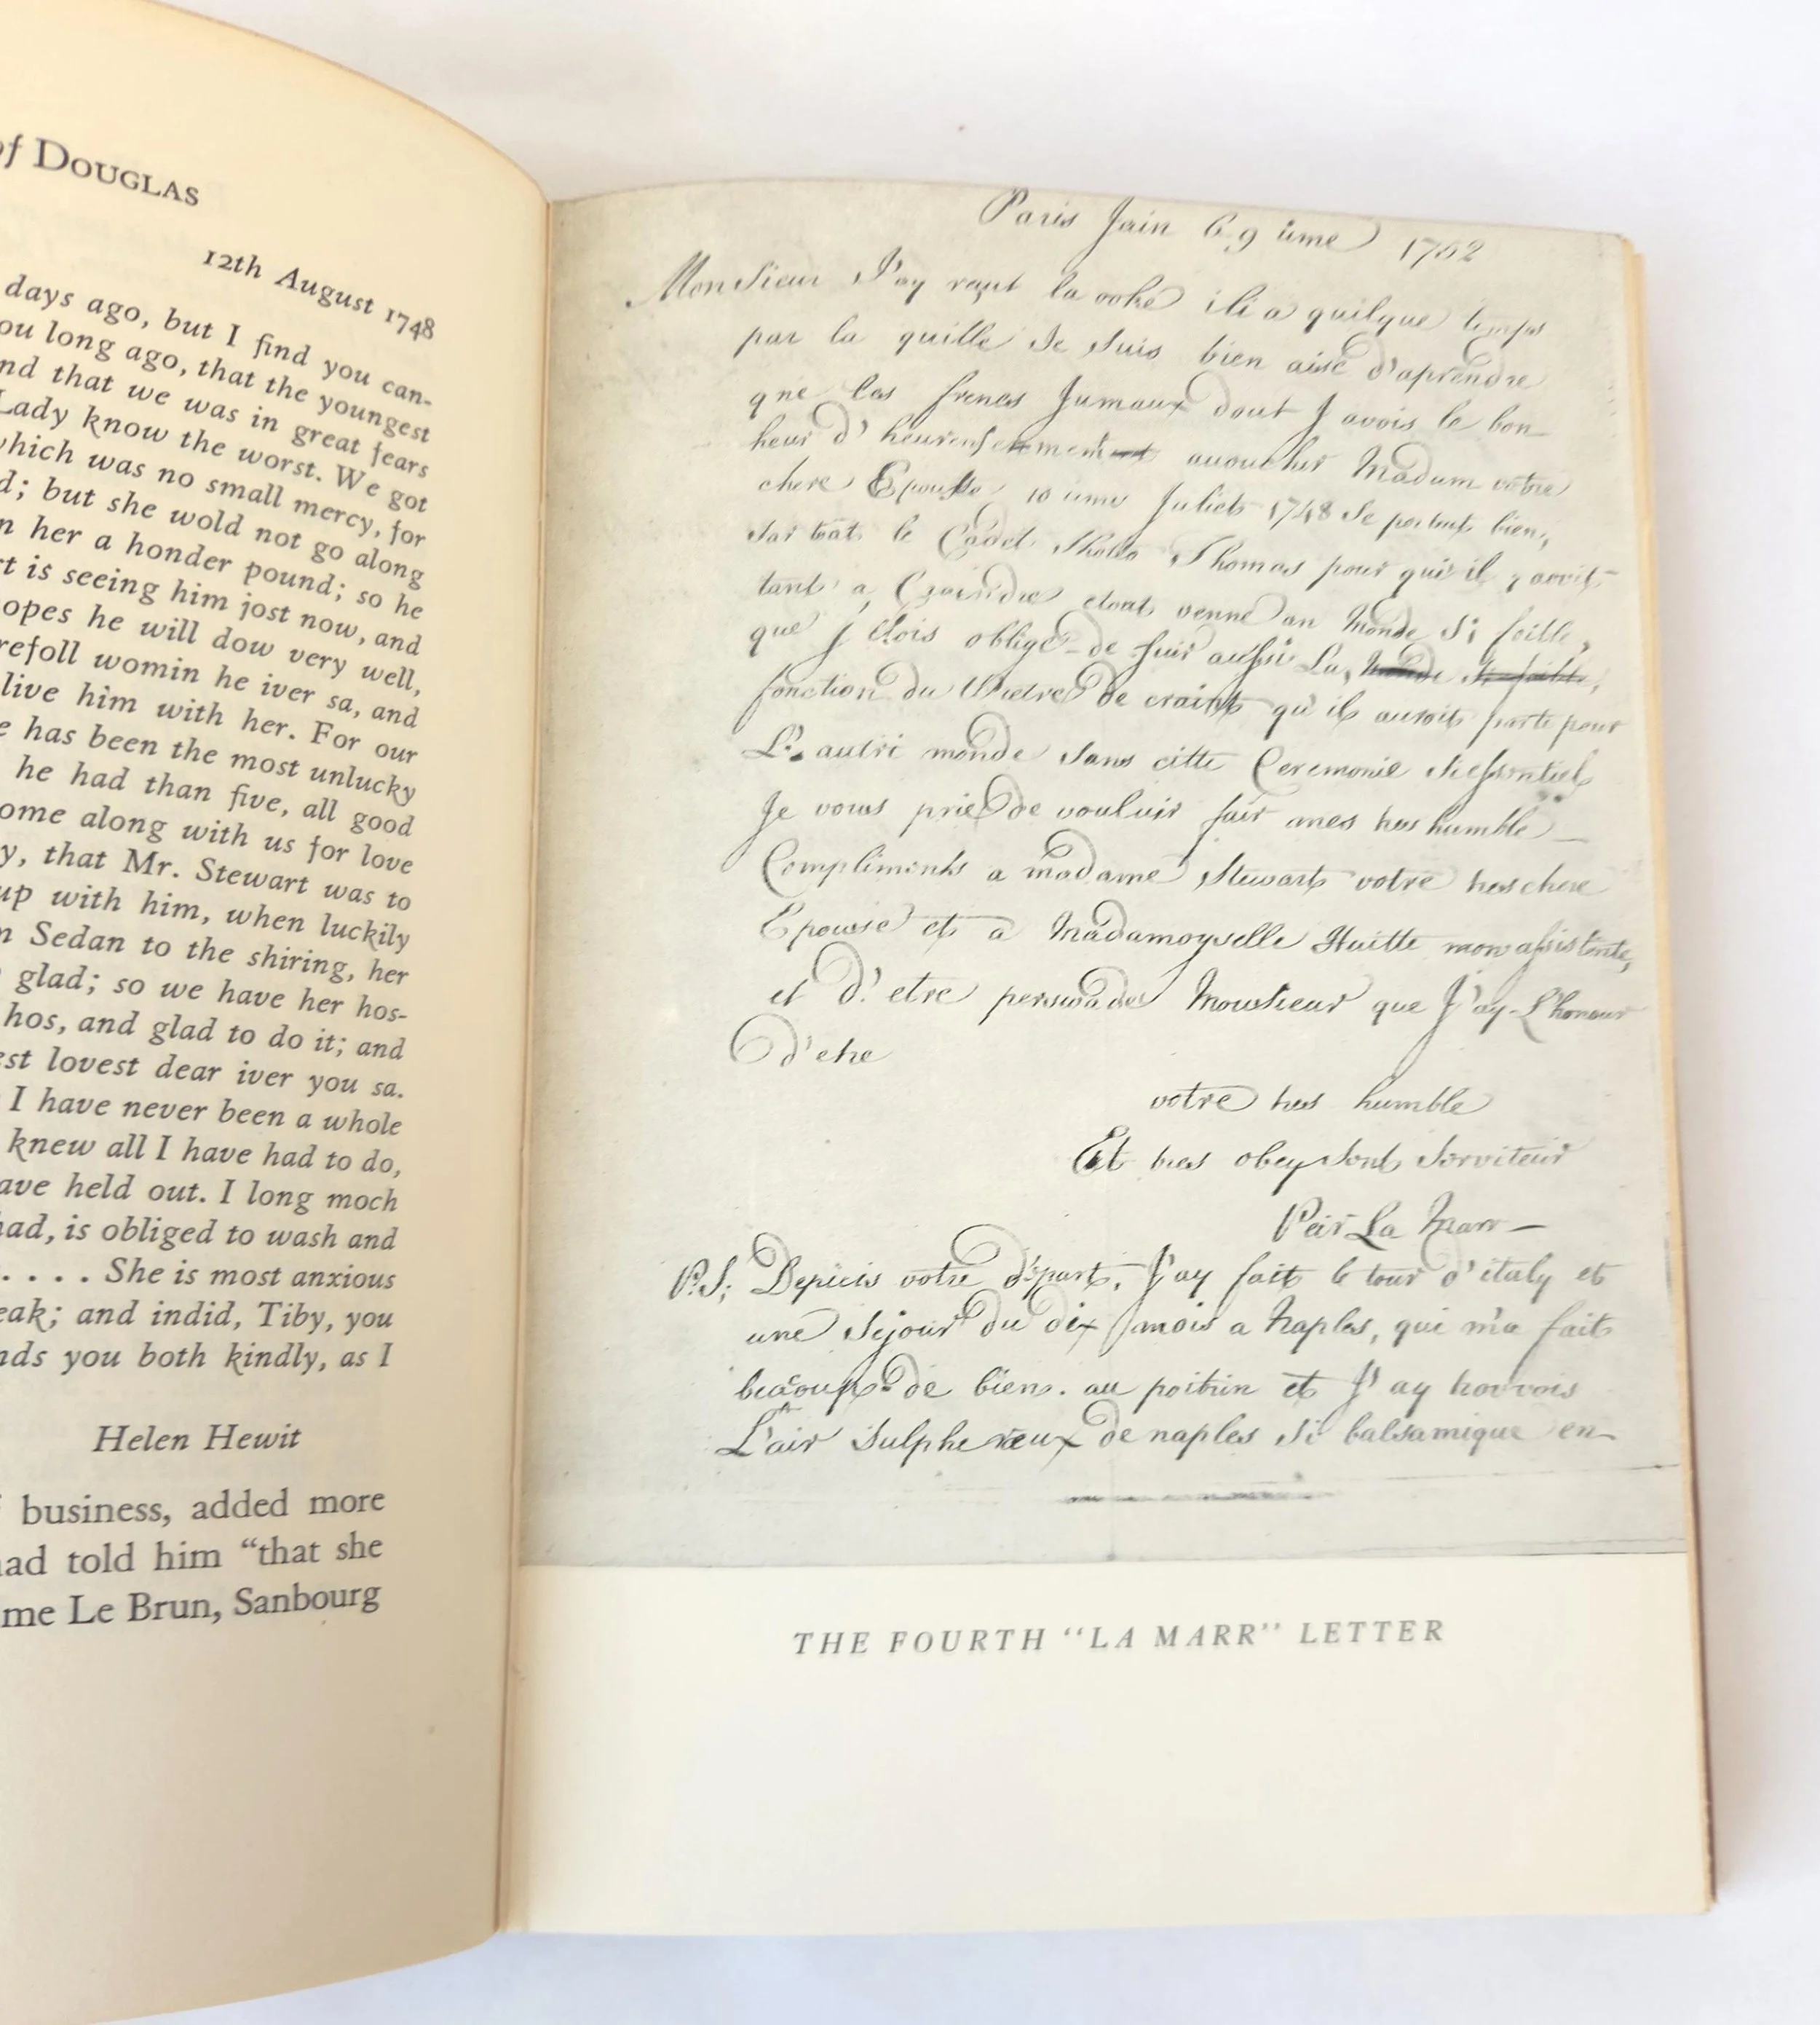 of DOUGLAS
12th August 1748
days ago, but I find you can-
ou long ago, that the youngest
nd that we was in great fears
Lady know the worst. We got
which was no small mercy, for
d; but she wold not go along
n her a honder pound; so he
rt is seeing him jost now, and
opes he will dow very well,
refoll womin he iver sa, and
live him with her. For our
e has been the most unlucky
he had than five, all good
ome along with us for love
y, that Mr. Stewart was to
up with him, when luckily
n Sedan to the shiring, her
glad; so we have her hos-
hos, and glad to do it; and
est lovest dear iver you sa.
I have never been a whole
knew all I have had to do,
ave held out. I long moch
had, is obliged to wash and
. . . . She is most anxious
eak; and indid, Tiby, you
nds you both kindly, as I
Helen Hewit
business, added more
had told him “that she
me Le Brun, Sanbourg
Paris Juin 6 9 ieme 1752
Monsieur J'ay reçut la votre ili a quilque temps
par la quille Je suis bien aise d'aprendre
que les freres Jumaux dont J avois le bon-
heur d' heureusement auoucher Madam votre
chere Epouse 10 ieme Juliet 1748 Se portent bien,
Sur tout le Cadet Sholto Thomas pour qui il y avoit
tant a Craindre etant venue au Monde Si foible,
que J'etois obligé de fair aussi La
fonction du Pretre de craint qu'il auroit parti pour
L'autre monde Sans citte Ceremonie Si essentiel
Je vous prie de vouloir fair mes tres humble
Compliments a madame Stewart votre tres chere
Epouse et a Madamoyselle Huitte mon assistente,
et d'etre perswadé Monsieur que J'ay L'honour
d'etre
votre tres humble
Et tres obeysent Serviteur
Peir La Marr —
P.S; Depuis votre départ, J'ay fait le tour d'italy et
une Sejour du dix mois a Naples, qui m'a fait
beacoup de bien. au poitrin et J'ay trovvois
L'air Sulphereux de naples Si balsamique en-
THE FOURTH “LA MARR” LETTER